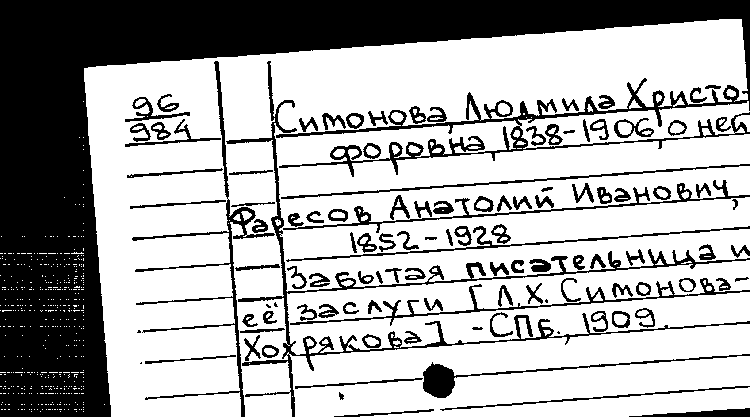 96
984
Симонова, Людмила Христо-
форовна, 1838-1906, о ней
Фаресов, Анатолий Иванович,
1852-1928
Забытая писательница и
её заслуги [Л.Х. Симонова-
Хохрякова]. -СПб., 1909.